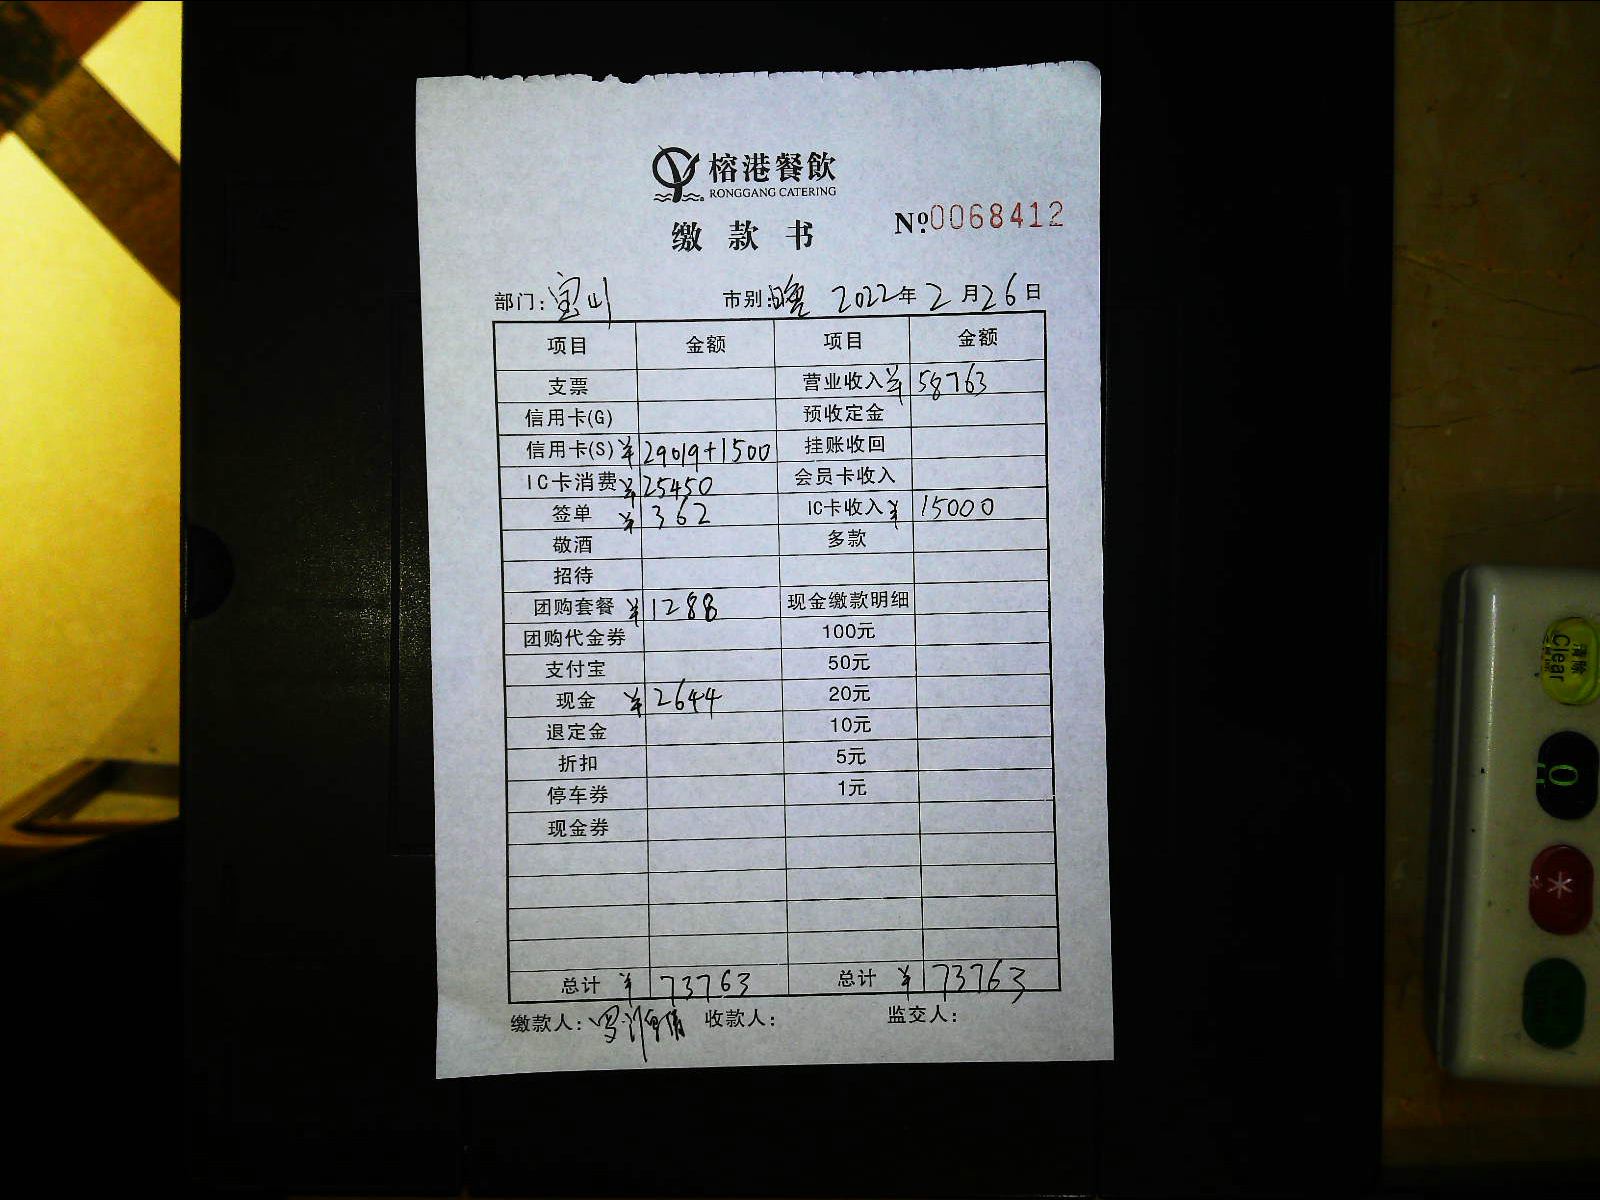 榕港餐飲
RONGGANG CATERING
缴款书
№:0068412
部门: 宝山 市别: 晚 2022年2月26日
项目 金额 项目 金额
支票 营业收入 ¥58763
信用卡(G) 预收定金
信用卡(S) ¥29019+1500 挂账收回
IC卡消费 ¥25450 会员卡收入
签单 ¥362 IC卡收入 ¥15000
敬酒 多款
招待
团购套餐 ¥1288 现金缴款明细
团购代金券 100元
支付宝 50元
现金 ¥2644 20元
退定金 10元
折扣 5元
停车券 1元
现金券
总计 ¥73763 总计 ¥73763
缴款人: 收款人: 监交人:
清除
Clear
0
*